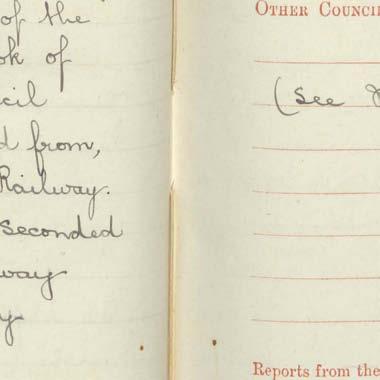 of the
ok of
cil
d from,
Railway.
seconded
way
y
OTHER COUNCI
(See
Reports from the